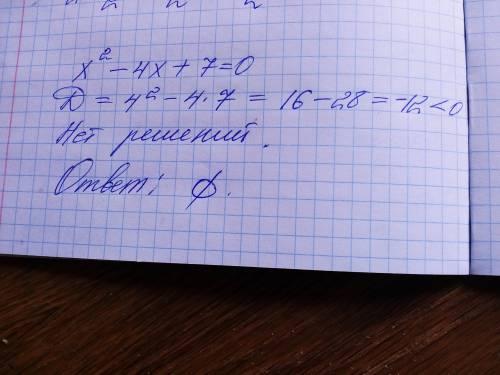 x² - 4x + 7 = 0
D = 4² - 4 · 7 = 16 - 28 = -12 < 0
Нет решений.
Ответ: ∅.